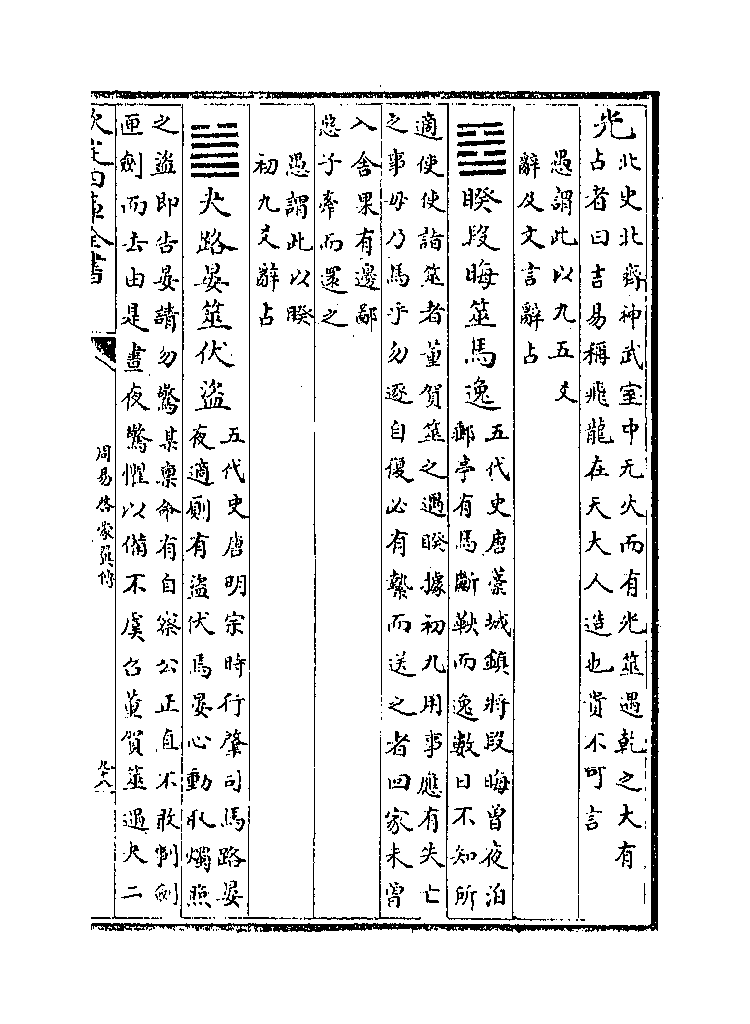 光北史北齊神武室中无火而有光筮遇乾之大有
占者曰吉易稱飛龍在天大人造也貴不可言
愚謂此以九五爻
辭及文言辭占
睽段晦筮馬逸
五代史唐藁城鎮將段晦曾夜泊
郵亭有馬斷鞅而逸數日不知所
適使使詣筮者董賀筮之遇睽據初九用事應有失亡
之事毋乃馬乎勿逐自復必有縶而送之者回家未曾
入舍果有邊鄙
惡子牽而還之
愚謂此以睽
初九爻辭占
夬路晏筮伏盜
五代史唐明宗時行肇司馬路晏
夜適厠有盜伏焉晏心動取燭照
之盜即告晏請勿驚某禀命有自察公正直不敢剚劍
匣劍而去由是晝夜驚懼以備不虞召董賀筮遇夬二
欽定四庫全書
周易啓蒙翼傳
九十八